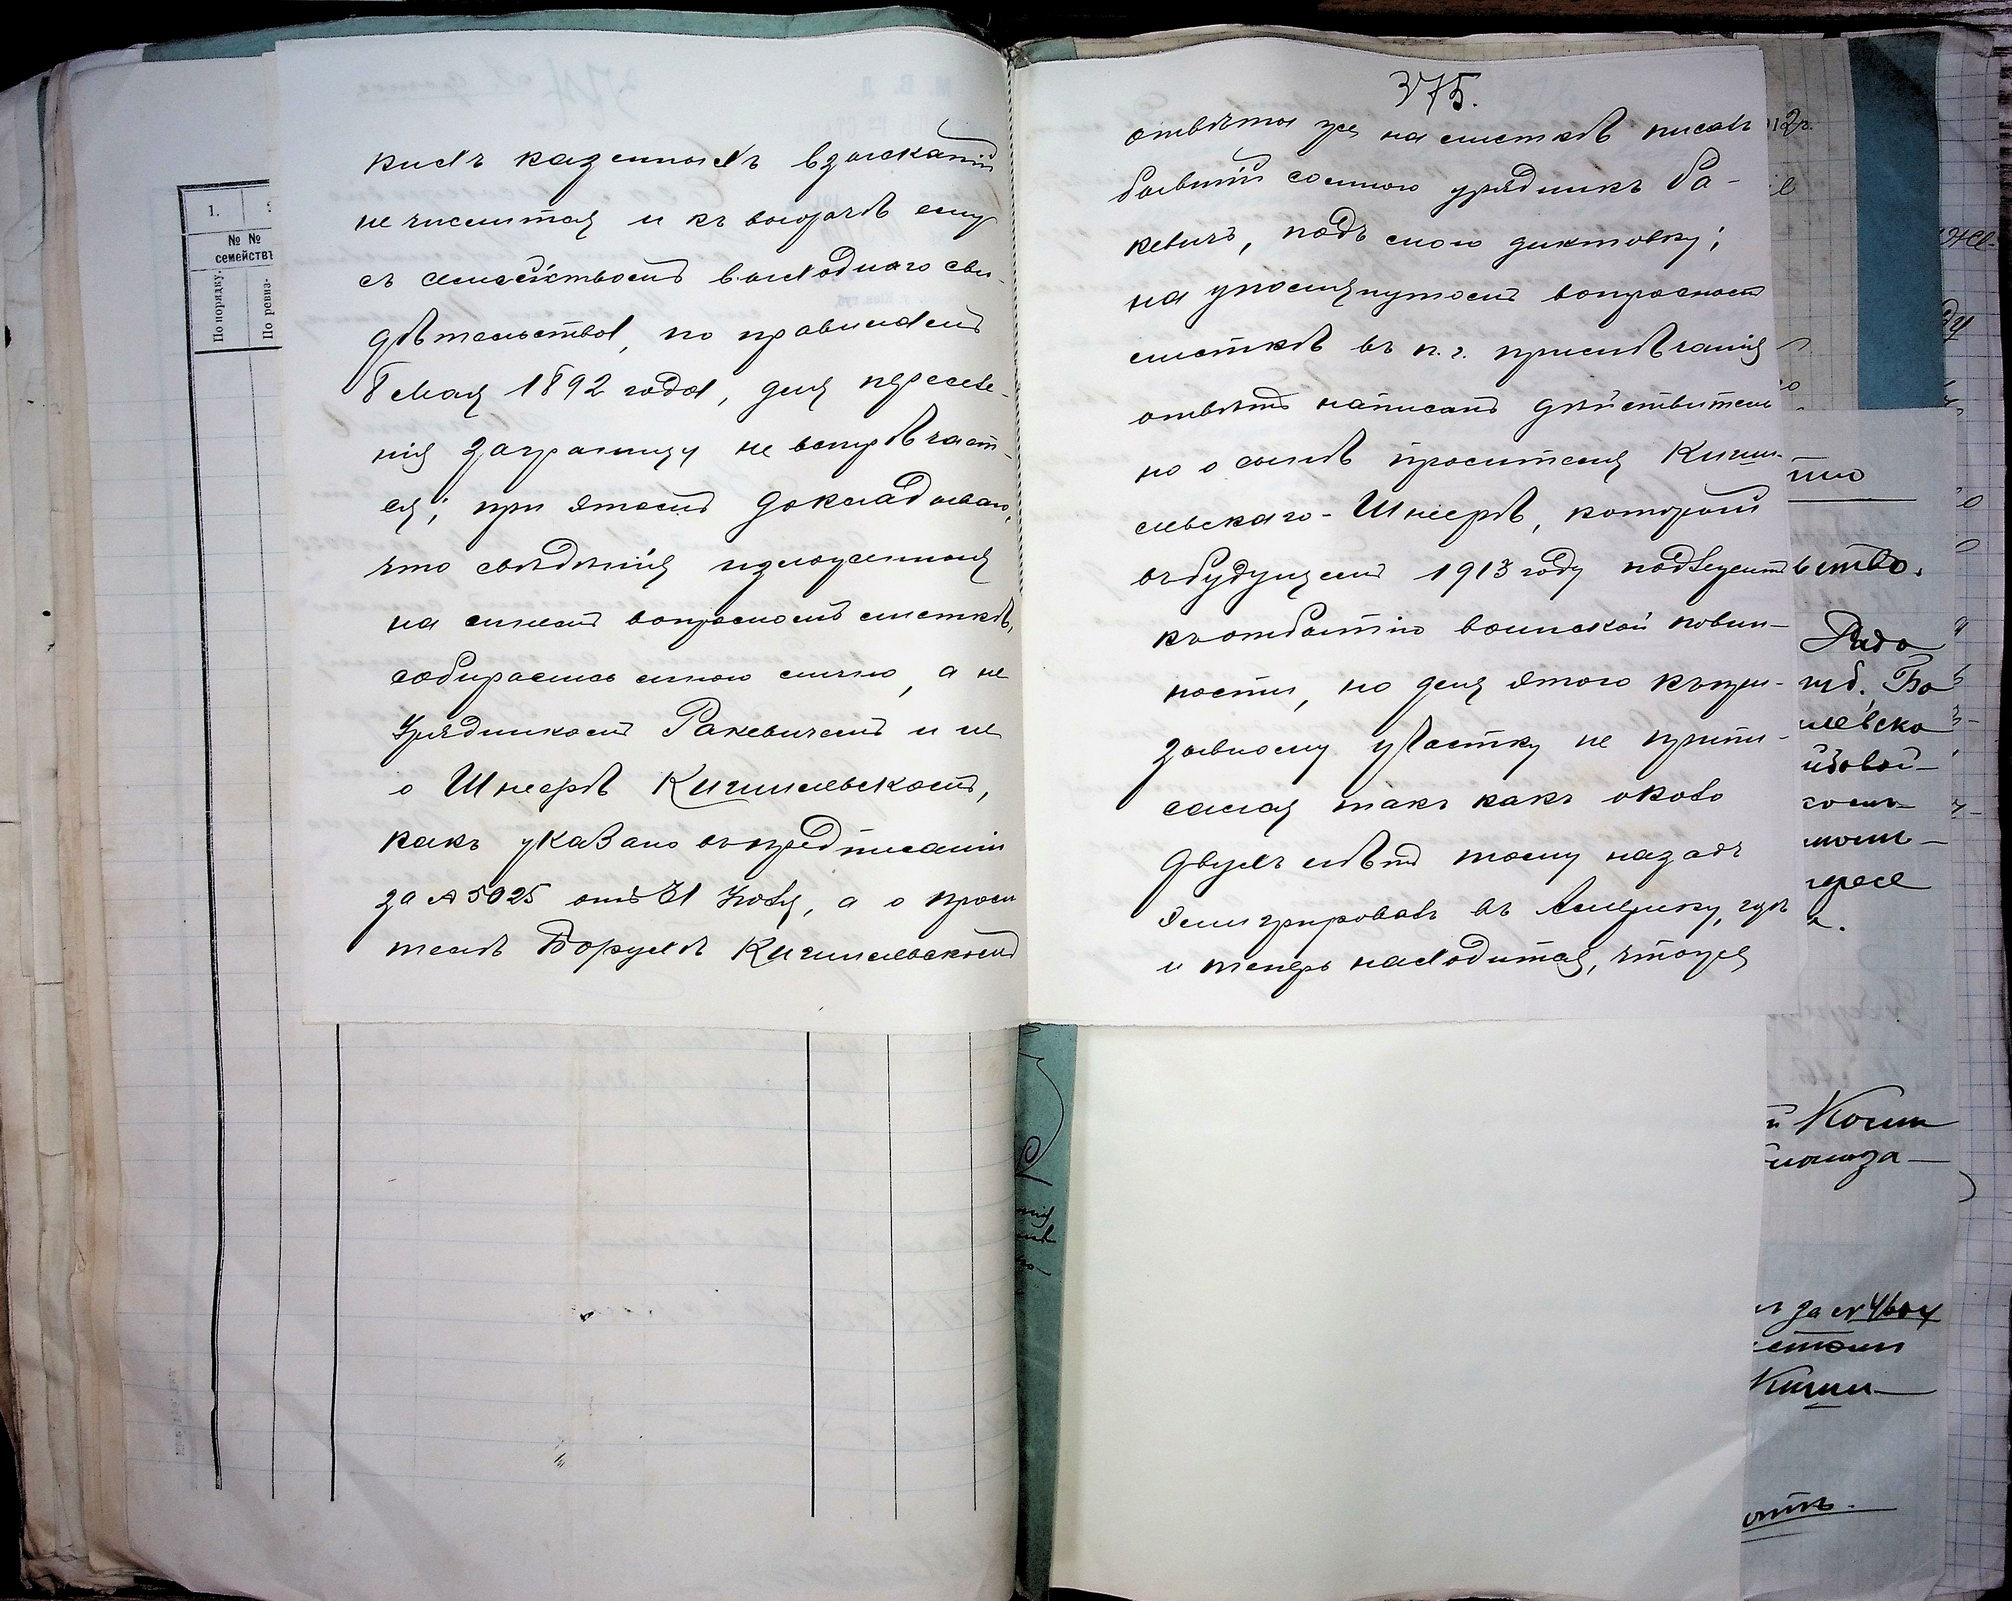 кихъ казенныхъ взысканій
не числится и къ выдачѣ ему
съ семействомъ выходного сви-
дѣтельства, по правиламъ
8 Мая 1892 года, для переселе-
нія заграницу не встрѣчает-
ся; при этомъ докладываю,
что свѣдѣнія изложенныя
на самомъ вопросномъ листкѣ,
собирались мною лично, а не
Урядникомъ Ракевичемъ и не
о Шнеерѣ Кигишевскомъ,
какъ указано въ предписаніи
за № 5025 отъ 31 Іюля, а о проси
телѣ Борухѣ Кигишевскомъ
375.
отвѣты же на листкѣ писалъ
бывшій сотнаго урядникъ Ра-
кевичъ, подъ мою диктовку;
на упомянутомъ вопросномъ
листкѣ въ п. г. примѣчанія
отвѣтъ написанъ дѣйствитель
но о сынѣ просителя Кигиш-
левскаго - Шнеерѣ, который
въ будущемъ 1913 году подлежитъ
къ отбытію воинской повин-
ности, но для этого къ при-
зывному участку не припи-
сался такъ какъ около
двухъ лѣтъ тому назадъ
эмигрировалъ въ Америку, гдѣ
и теперь находится, что для
1.
№ №
семействъ
По порядку.
По ревиз-
12г.
ьство.
Радо
шб. Бо
левско